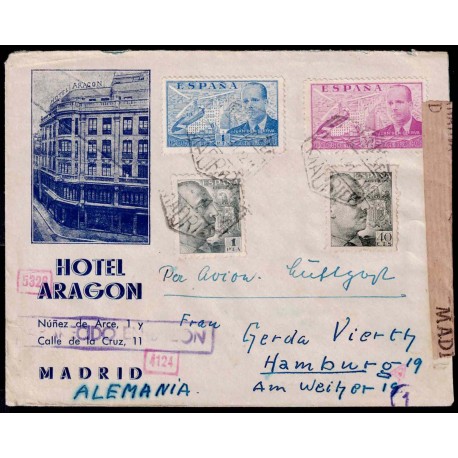 ARAGON
ESPAÑA
ESPAÑA
1
PTA
40
CTS
HOTEL
ARAGON
5320
Núñez de Arce, 1 y
Calle de la Cruz, 11
4124
MADRID
ALEMANIA.
Per Avion. Luftpost
Frau
Gerda Vierth
Hamburg 19
Am Weiher 19
MADRID
1